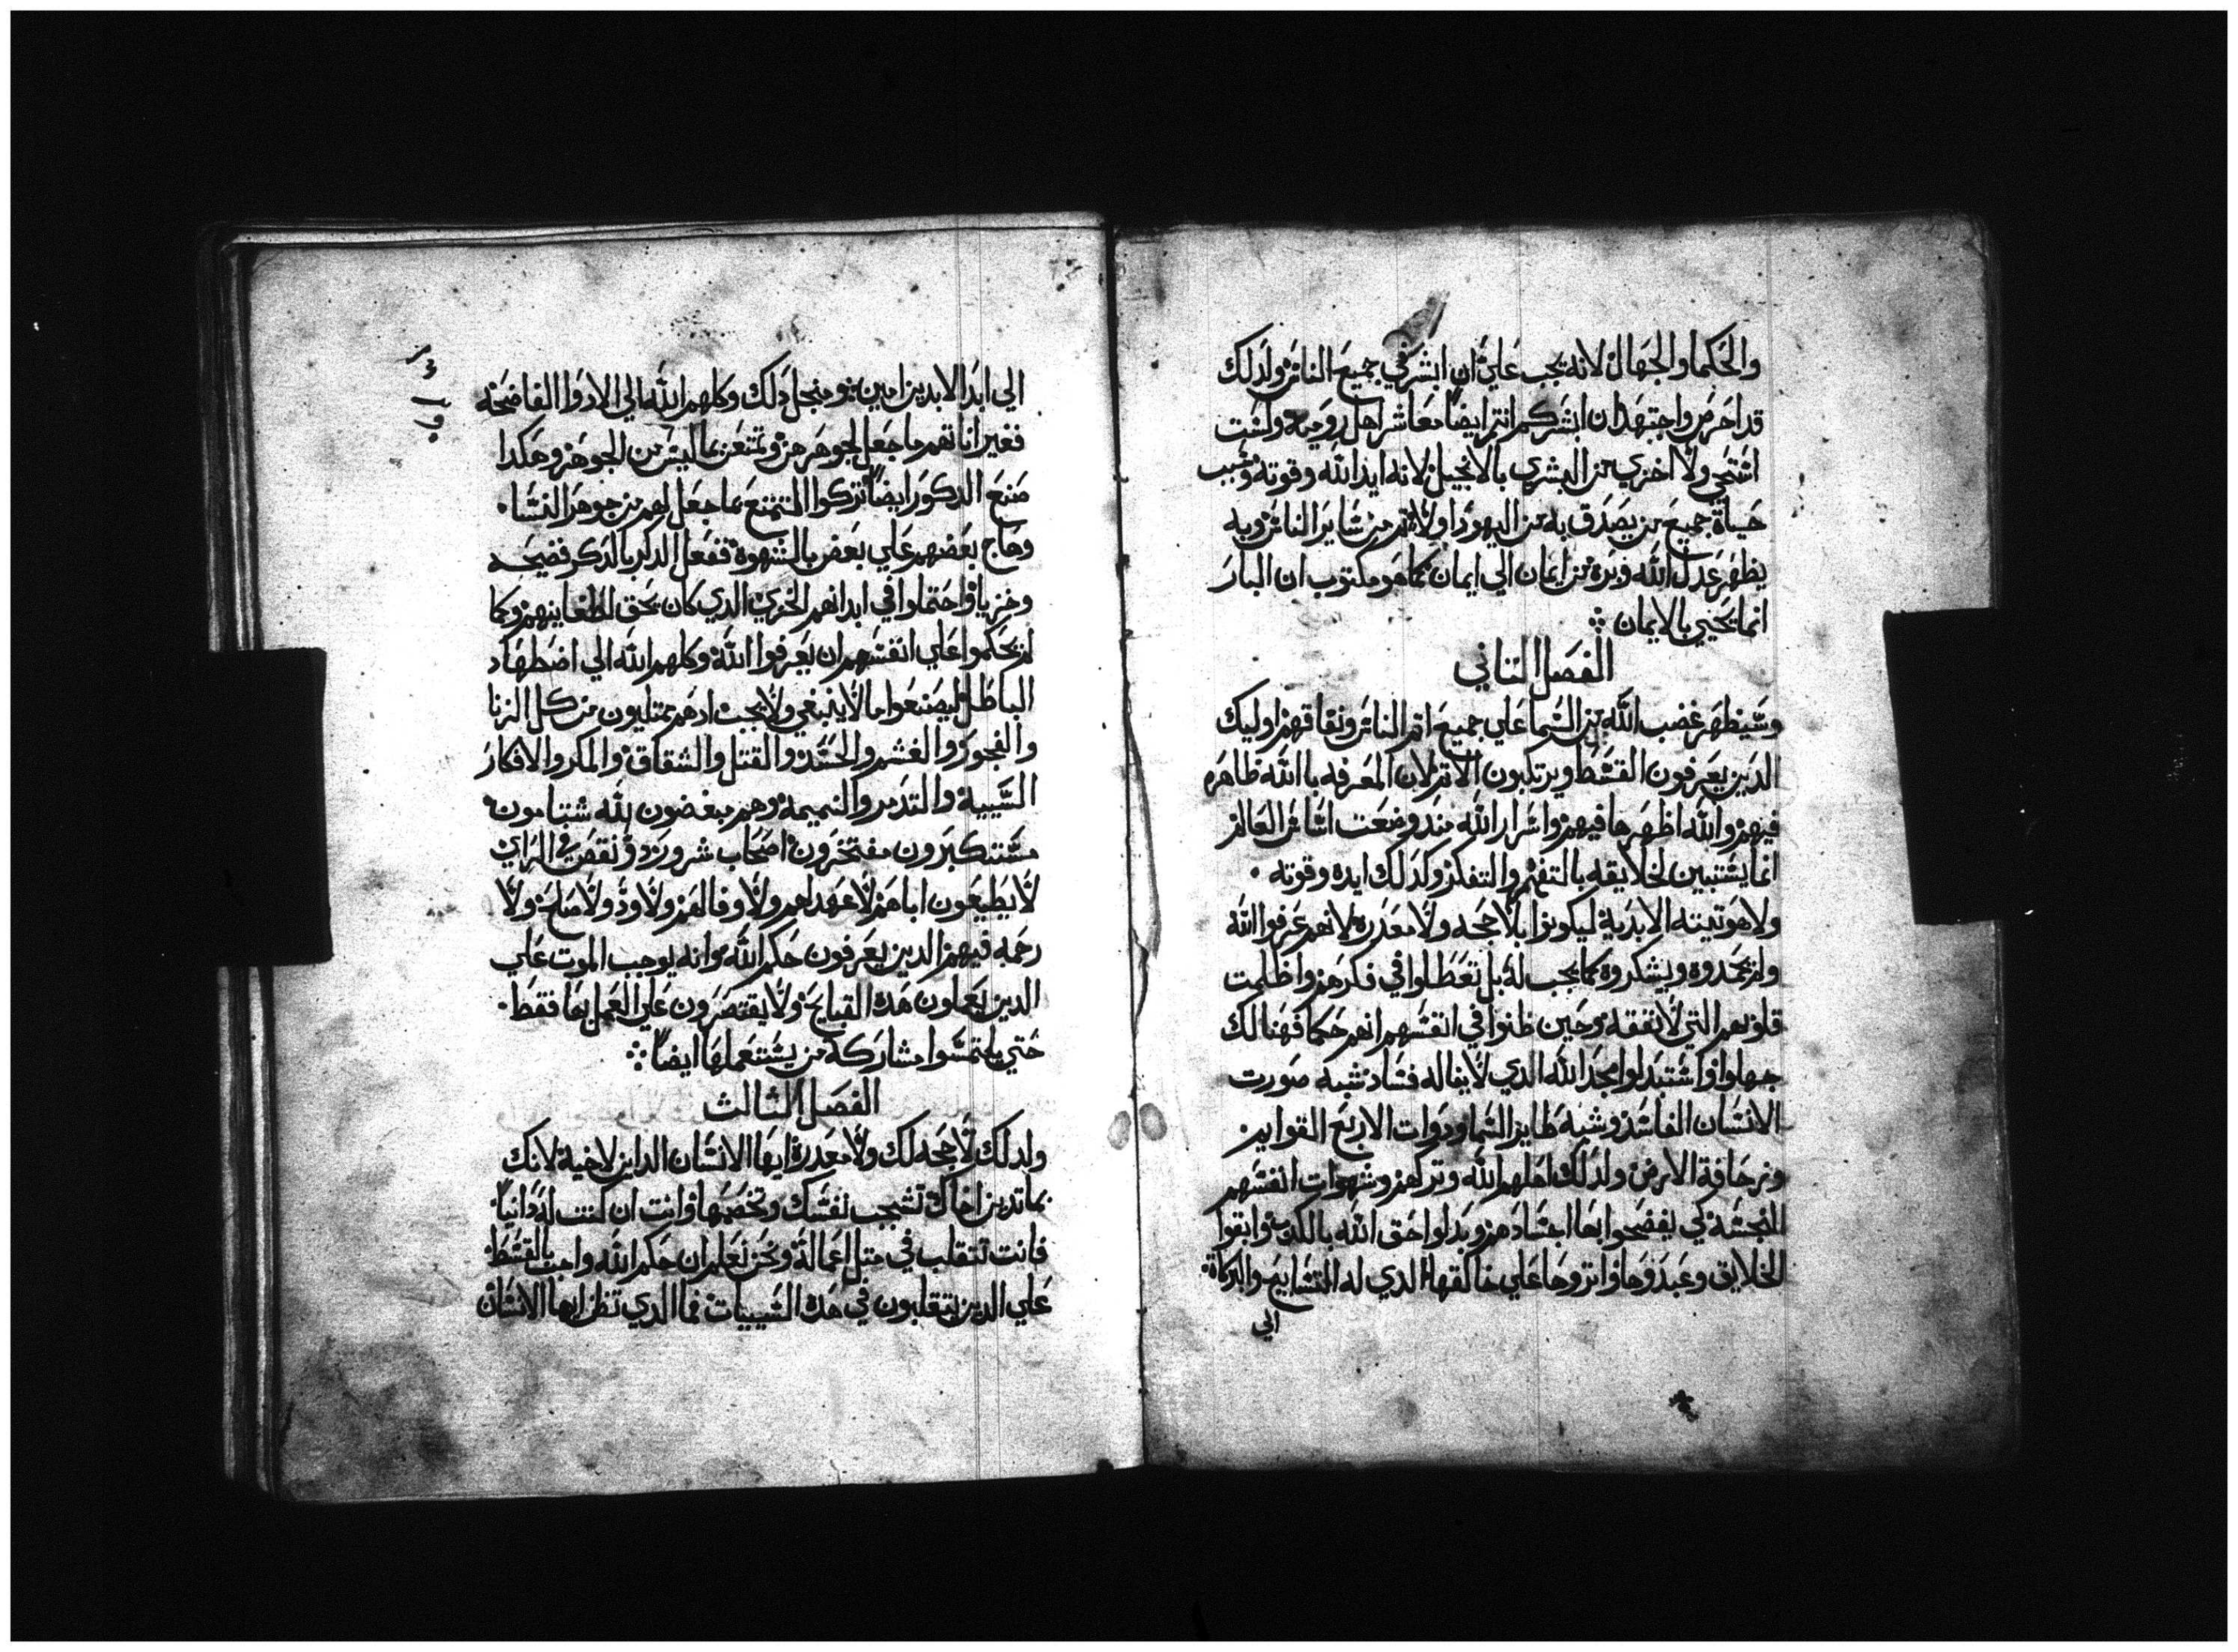 والحكما والجهال لانه يجب علي ان ابشر في جميع الناس ولدلك
قد احرص واجتهد ان ابشركم انتم ايضا معاشر اهل روميه ولست
استحي ولا اخزي من البشري بالانجيل لانه ايد الله وقوته وسبب
حياة جميع من يصدق به من اليهود اولا ثم من ساير الناس وبه
يظهر عدل الله وبره من ايمان الي ايمان كما هو مكتوب ان البار
انما يحيي بالايمان
الفصل التاني
وسيظهر غضب الله من السما علي جميع اتم الناس ونفاقهم اوليك
الدين يعرفون القسط ويرتكبون الاثم لان المعرفه باالله ظاهره
فيهم والله اظهرها فيهم واسرار الله مند وضعت اساس العالم
انما يستبين لخلايقه بالتفهم والتفكر وكدلك ايده وقوته
ولاهوتيته الابدية ليكونوا بلا حجه ولا معدره لانهم عرفوا الله
ولم يمجدوه ويشكروه كما يجب له بل تعطلوا في فكرهم واظلمت
قلوبهم التي لا تفقه وحين ظنوا في انفسهم انهم حكما فهنالك
جهلوا واستبدلوا مجد الله الدي لا يناله فساد شبه صورت
الانسان الفاسد وشبه طاير السما ودوات الاربع القوايم
وزحافة الارض ولدلك اهملهم الله وتركهم وشهوات انفسهم
النجسة كي يفضحوا بها اجسادهم وبدلوا حق الله بالكدب واتقوا
الخلايق وعبدوها واتروها علي خالقها الدي له التسابيح والبركاة
الي
الي ابد الابدين امين ومنجل دلك وكلهم الله الي الادوا الفاضحه
فغير اناتهم ما جعل لجوهرهن وتمتعن بما ليس من الجوهر وهكدا
صنع الدكور ايضا تركوا التمتع بما جعل لهم من جوهر النسا
وهاج بعضهم علي بعض بالشهوة ففعل الدكر بالدكر فضيحه
وخزيا واحتملوا في ابدانهم الخزي الدي كان يحق لطغايينهم وكما
لم يحكموا علي انفسهم ان يعرفوا الله وكلهم الله الي اضطهاد
الباطل ليصنعوا ما لا ينبغي ولا يجب ادهم ممتليون من كل الزنا
والفجور والغشم والحسد والقتل والشقاق والمكر والافكار
السيية والتدمر والنميمة وهم مبغضون لله شتامون
مستكبرون مفتخرون اصحاب شرور ودو نقص في الراي
لا يطيعون اباهم لا عهد لهم ولا وفا لهم ولا ود ولا صلح ولا
رحمه فيهم الدين يعرفون حكم الله وانه يوجب الموت علي
الدين يعملون هده القبايح ولا يقتصرون علي العمل بها فقط
حتي يلتمسوا مشاركة من يستعملها ايضا
الفصل الثالث
ولدلك لا حجه لك ولا معدرة ايها الانسان الداين لاخيه لانك
بما تدين اخاك تشجب نفسك وتخصمها وانت ان كنت له داينا
فانت تتقلب في متل اعماله ونحن نعلم ان حكم الله واجب بالقسط
علي الدين يتقلبون في هده السييات فما الدي تظن ايها الانسان